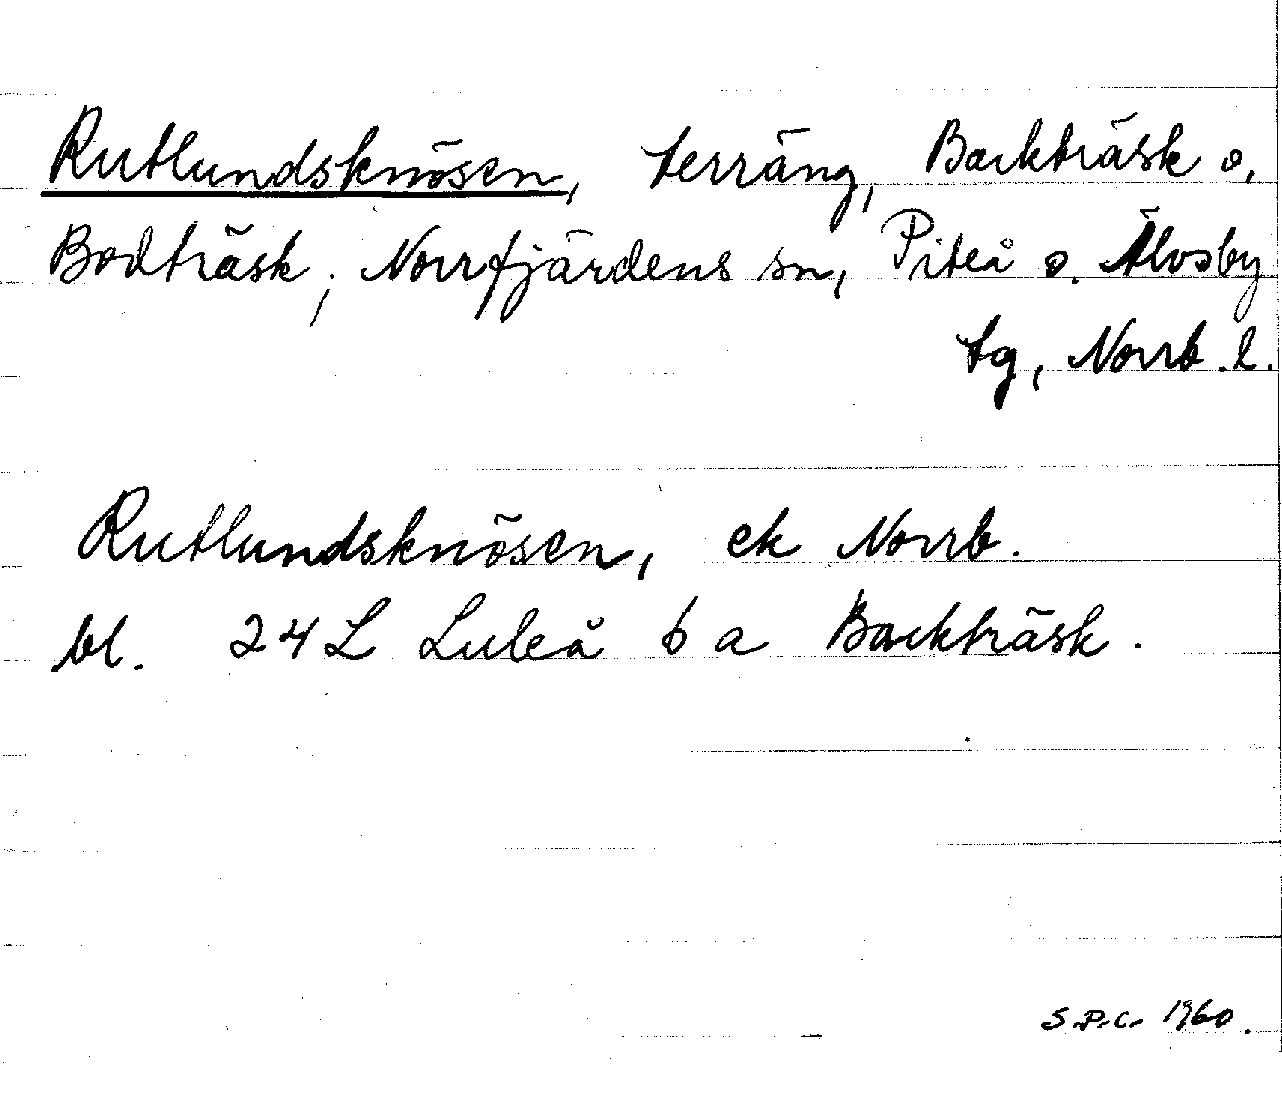 Rutlundsknösen, terräng, Backträsk o.
Bodträsk, Norrfjärdens sn, Piteå o. Älvsby
tg, Norrb. l.
Rutlundsknösen, ek Norrb.
bl. 24 L Luleå 6 a Backträsk.
S.P.C. 1960.